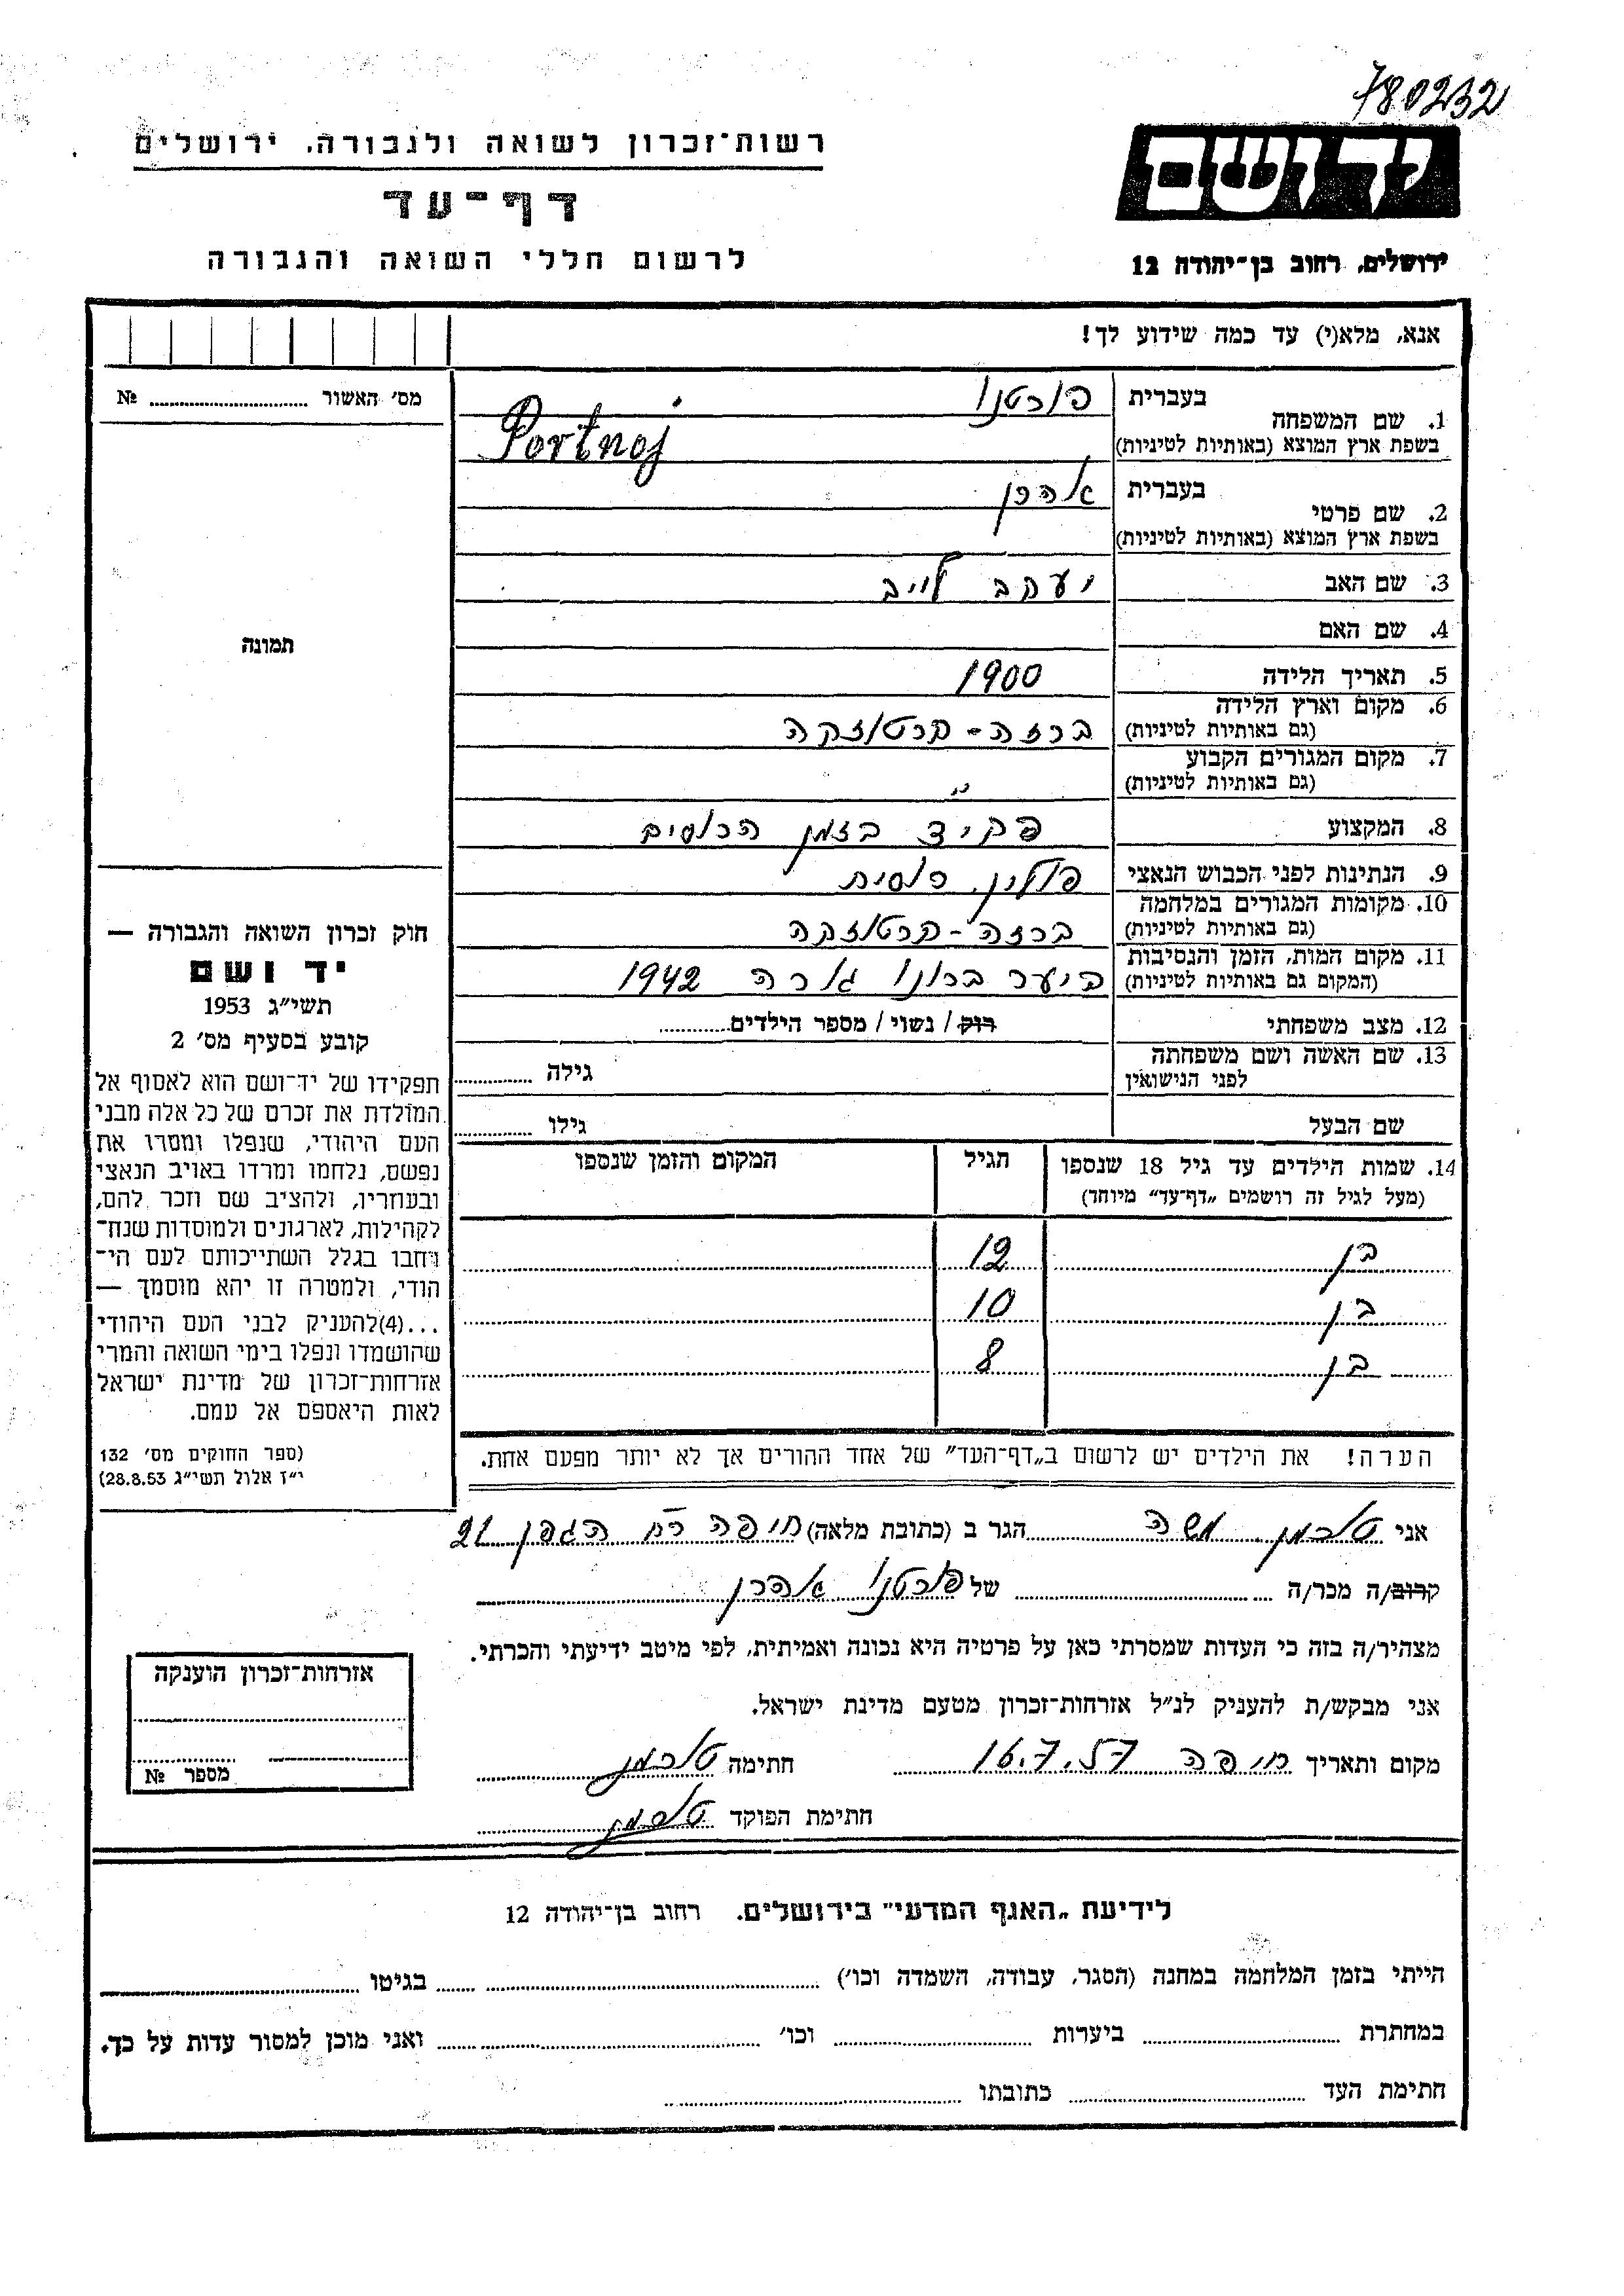 780232
יד ושם
ירושלים, רחוב בן־יהודה 12
רשות־זכרון לשואה ולגבורה, ירושלים
דף־עד
לרשום חללי השואה והגבורה
אנא, מלא(י) עד כמה שידוע לך!
מס׳ האשור № 
תמונה
1. שם המשפחה בעברית פורטנוי
בשפת ארץ המוצא (באותיות לטיניות) Portnoj
2. שם פרטי בעברית אהרן
בשפת ארץ המוצא (באותיות לטיניות)
3. שם האב יעקב לייב
4. שם האם
5. תאריך הלידה 1900
6. מקום וארץ הלידה ברזה - קרטוזקה
(גם באותיות לטיניות)
7. מקום המגורים הקבוע "
(גם באותיות לטיניות)
8. המקצוע פקיד בזמן הרוסים
9. הנתינות לפני הכבוש הנאצי פולין, רוסית
10. מקומות המגורים במלחמה ברזה - קרטוזקה
(גם באותיות לטיניות)
11. מקום המות, הזמן והנסיבות ביער ברונו גורה 1942
(המקום גם באותיות לטיניות)
12. מצב משפחתי רוק / נשוי / מספר הילדים
13. שם האשה ושם משפחתה לפני הנישואין גילה
שם הבעל גילו
14. שמות הילדים עד גיל 18 שנספו הגיל המקום והזמן שנספו
(מעל לגיל זה רושמים „דף־עד” מיוחד)
בן 12
בן 10
בן 8
הערה! את הילדים יש לרשום ב„דף־העד” של אחד ההורים אך לא יותר מפעם אחת.
חוק זכרון השואה והגבורה —
יד ושם
תשי״ג 1953
קובע בסעיף מס׳ 2
תפקידו של יד־ושם הוא לאסוף אל
המולדת את זכרם של כל אלה מבני
העם היהודי, שנפלו ומסרו את
נפשם, נלחמו ומרדו באויב הנאצי
ובעוזריו, ולהציב שם וזכר להם,
לקהילות, לארגונים ולמוסדות שנח־
רבו בגלל השתייכותם לעם הי־
הודי, ולמטרה זו יהא מוסמך —
...(4)להעניק לבני העם היהודי
שהושמדו ונפלו בימי השואה והמרי
אזרחות־זכרון של מדינת ישראל
לאות היאספם אל עמם.
(ספר החוקים מס׳ 132
י״ז אלול תשי״ג 28.8.53)
אני טוכמן משה הגר ב (כתובת מלאה) חיפה רח הגפן 21
קרוב/ה מכר/ה של פורטנוי אהרן
מצהיר/ה בזה כי העדות שמסרתי כאן על פרטיה היא נכונה ואמיתית, לפי מיטב ידיעתי והכרתי.
אני מבקש/ת להעניק לנ״ל אזרחות־זכרון מטעם מדינת ישראל.
מקום ותאריך חיפה 16.7.57 חתימה טוכמן
חתימת הפוקד טוכמן
אזרחות־זכרון הוענקה
מספר №
לידיעת „האגף המדעי” בירושלים, רחוב בן־יהודה 12
הייתי בזמן המלחמה במחנה (הסגר, עבודה, השמדה וכו׳) בגיטו
במחתרת ביערות וכו׳ ואני מוכן למסור עדות על כך.
חתימת העד כתובתו